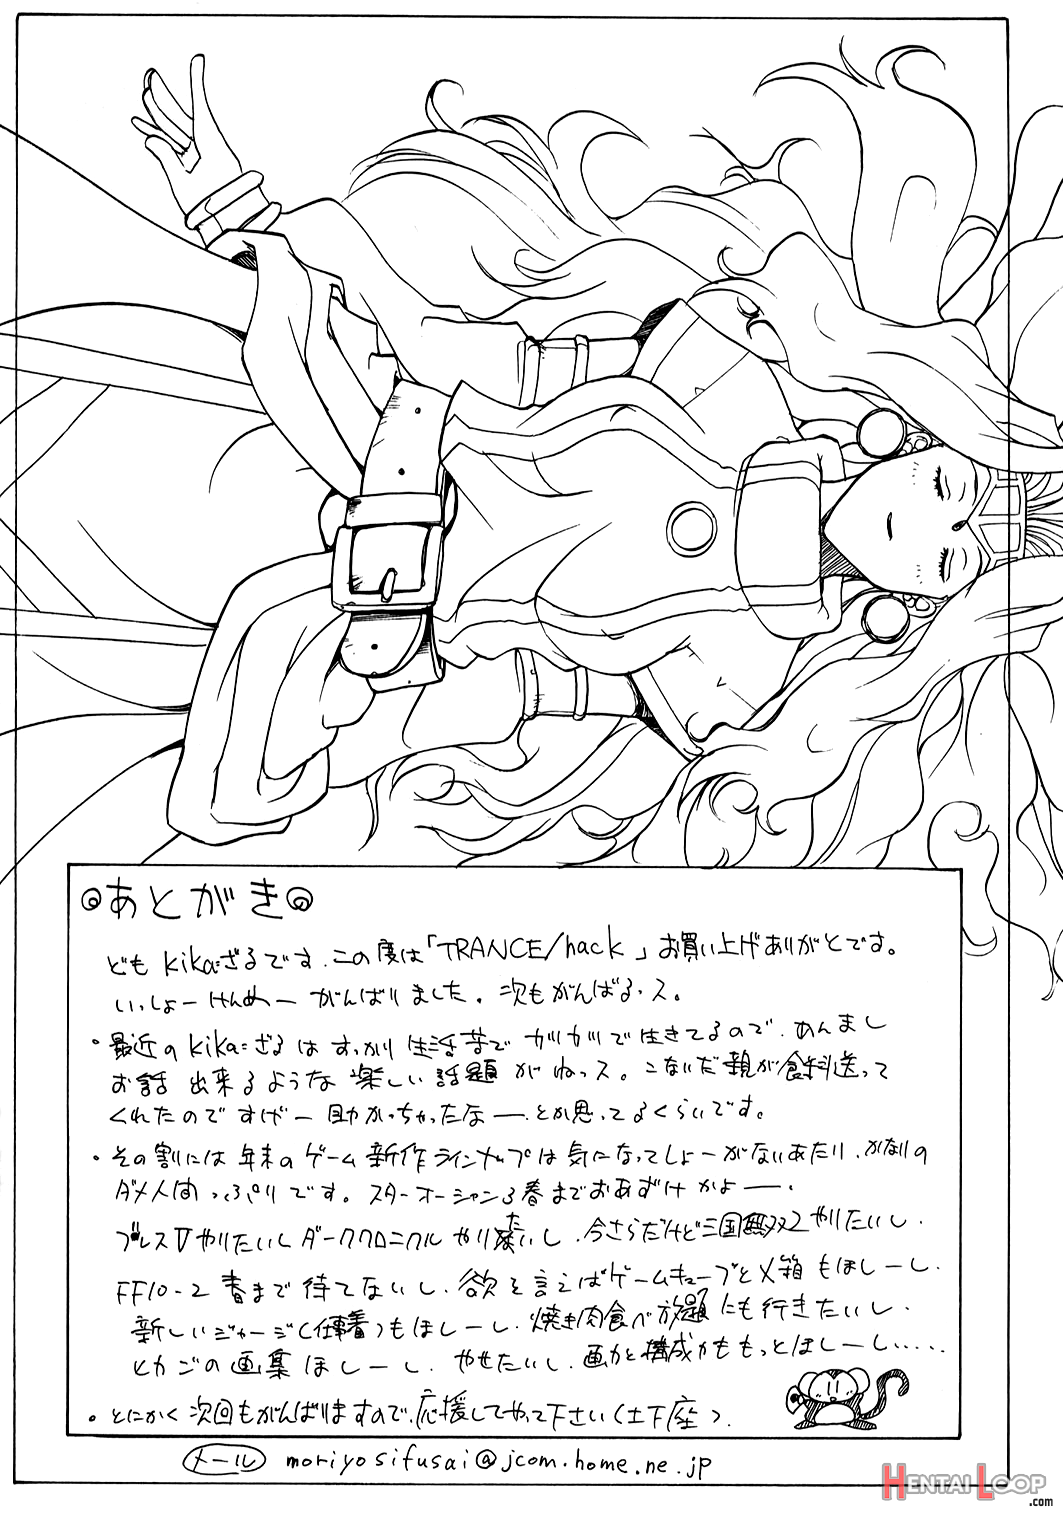 あとがき
どもkikaざるです.この度は「TRANCE/hack」お買い上げありがとです。
いっしょーけんめーがんばりました。次もがんばるっス。
・最近のkikaざるはすっかり生活苦でガリガリで生きてるので、あんまし
お話出来るような楽しい話題がねっス。こないだ親が食料送って
くれたのですげー助かっちゃったなー―.とか思ってるくらいです。
・その割には年末のゲーム新作ラインナップは気になってしょーがないあたり、かなりの
ダメ人間っぷりです。スターオーシャン3春までおあずけかよ――.
ブレスⅤやりたいしダーククロニクルやりたいし.今さらだけど三国無双2やりたいし.
FF10-2春まで待てないし.欲を言えばゲームキューブと×箱もほしーし.
新しいジャージ(仕事着)もほしーし.焼き肉食べ放題にも行きたいし.
ヒカゴの画集ほしーし.やせたいし.画力と構成力ももっとほしーし.....
・とにかく次回もがんばりますので、応援してやって下さい(土下座).
メール moriyosifusai@jcom.home.ne.jp
HENTAI LOOP
.com